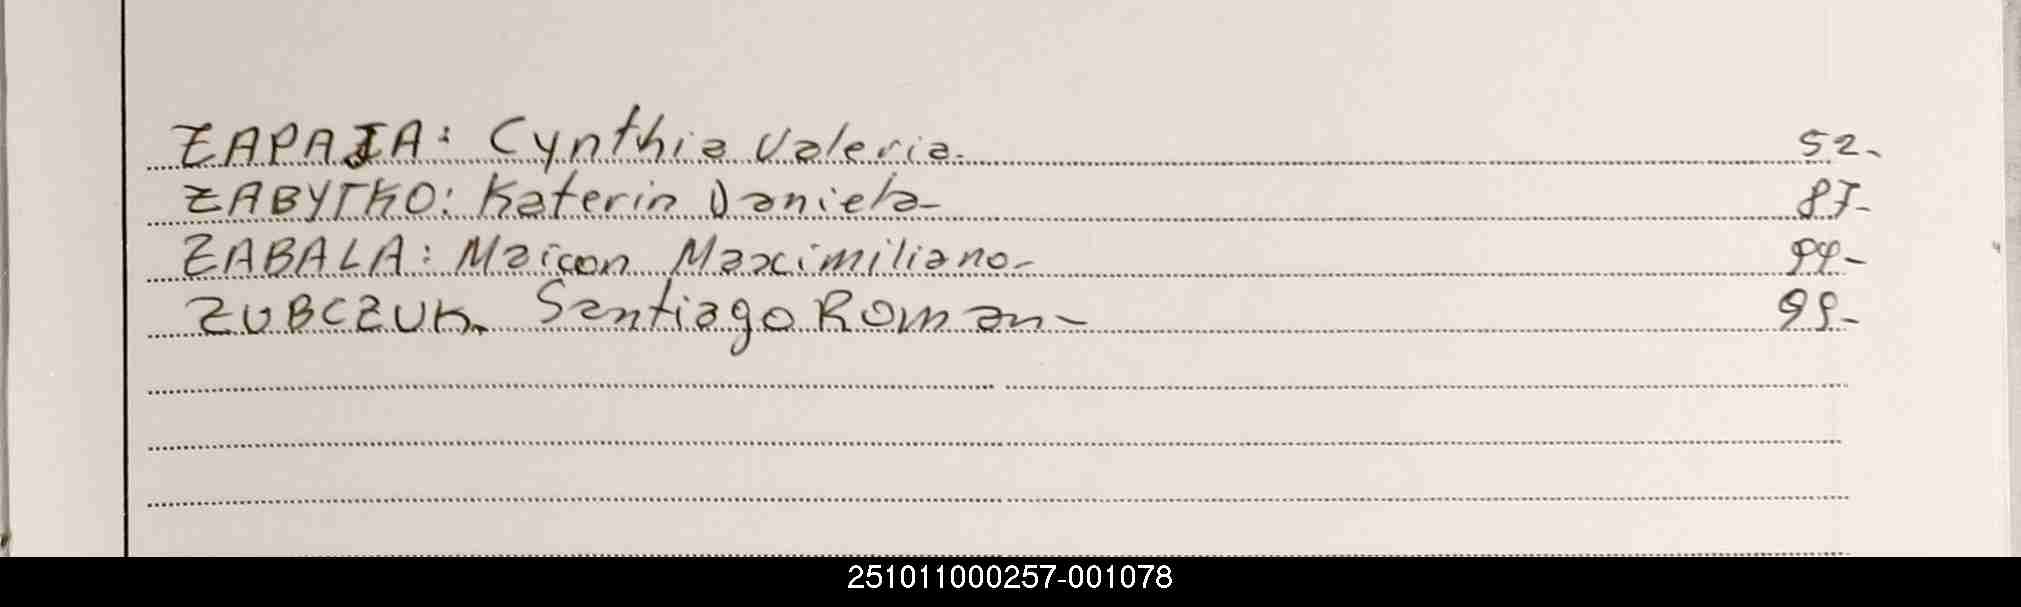 ZAPAIA: Cynthia Valeria. 52-
ZABYTKO: Katerin Daniela- 87-
ZABALA: Maicon Maximiliano- 94-
ZUBCZUK. Santiago Roman- 99-
251011000257-001078